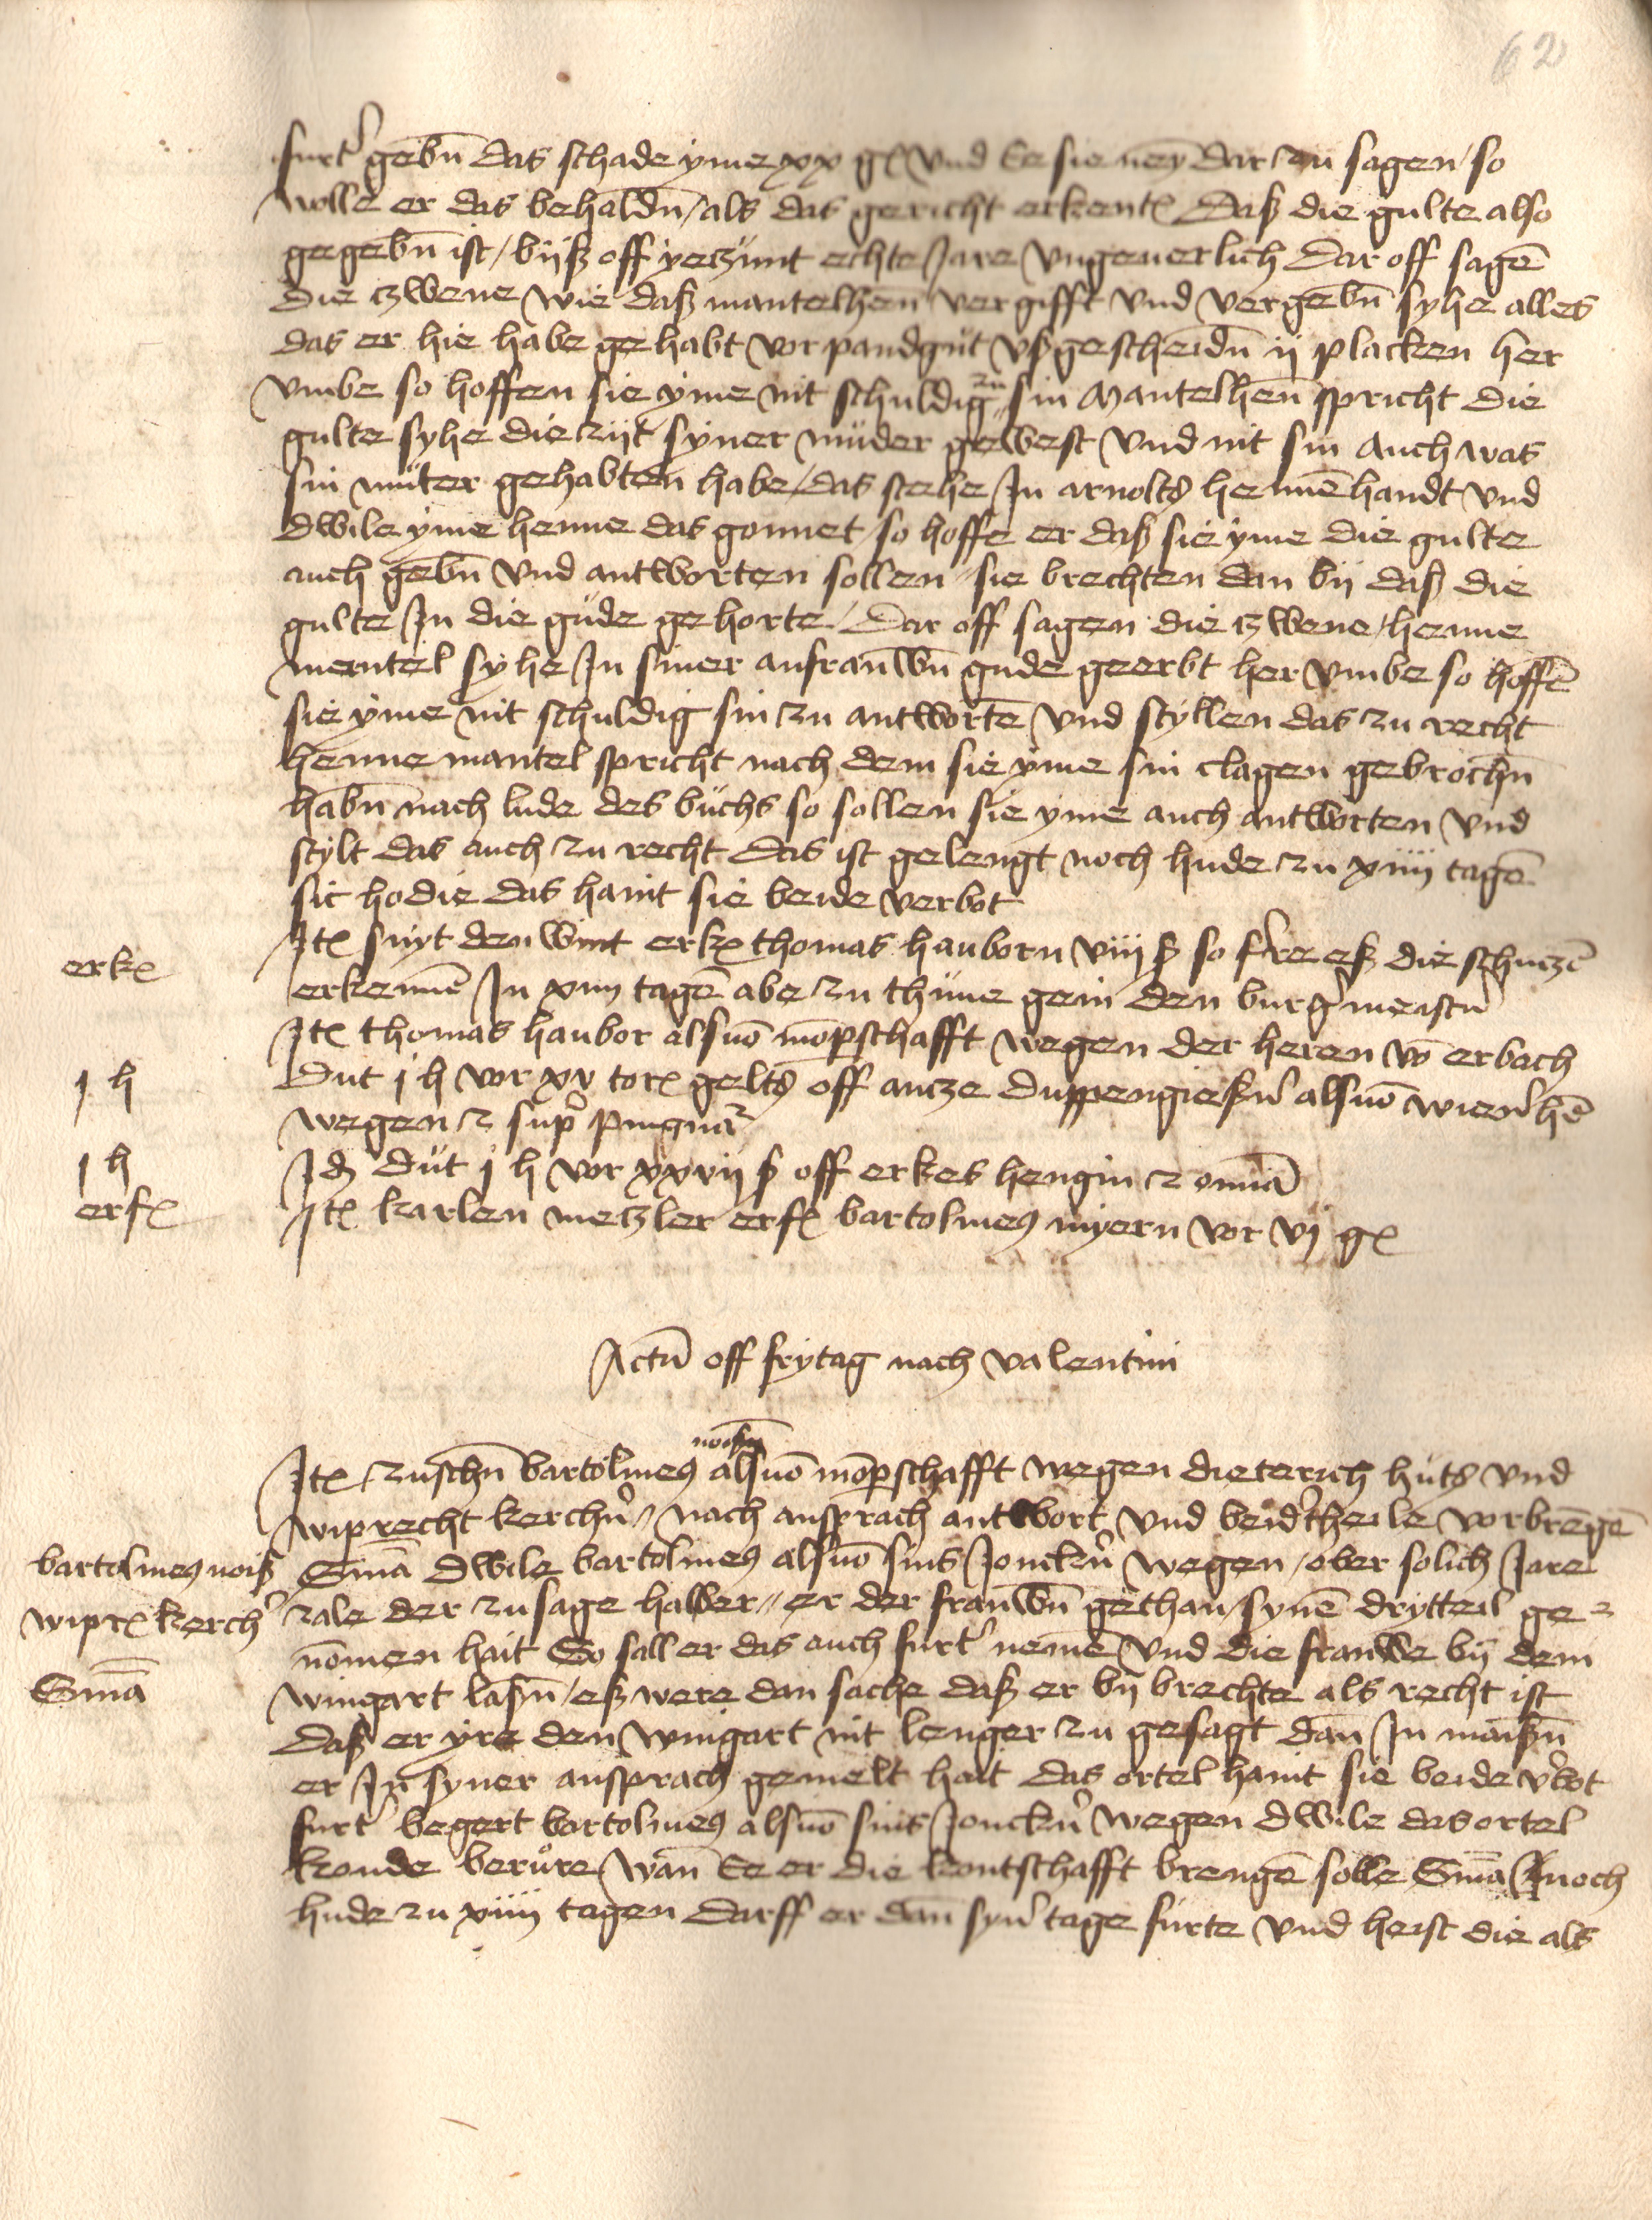 62
furt' gebn̄ das schade yme xx gl vnd Ee sie ney dar zu sagen / so
wolle er das behaldn̄ / als das gericht erkentl Daß die gulte also
gegebn̄ ist / byß off yetzunt echte Jare vngeuerlich Dar off sagē
die zwene wie daß mantelhen̄ vergifft vnd vergebn̄ syhe alles
das er hie habe gehabt vor pandgut vßgescheidn̄ ij placken her
vmbe so hoffen sie yme nit schuldig zu sin Mantelhen̄ spricht die
gulte syhe die zijt syner muder gewest vnd nit sin Auch was
sin muter gehabten habe / das stehe Jn arnolts hennē handt vnd
dwile yme henne das gonnet / so hoffe er daß sie yme die gulte
auch gebn̄ vnd antworten sollen // sie brechten dan bij daß die
gulte Jn die gude gehorte / Dar off sagen die zwene / henne
mentel syhe Jn siner anfrauwn̄ gude geerbt her vmbe so hoffē
sie yme nit schuldig sin zu antwortē vnd styllen das zu recht
henne mantel spricht nach dem sie yme sin clagen gebrochn̄
habn̄ nach lude des buchs so sollen sie yme auch antworten vnd
stylt das auch zu recht das ist gelengt noch hude zu xiiij tagē
sic hodie das haint sie beide verbot
erkl
Jtl snyt den wint erkl thomas hauborn viij ß so ferre eß die schutzē
erkennē Jn xiiij tagē abe zu thune gein den burg'meistn̄
Jtl thomas haubor alsuō mōp̄schafft wegen der heren vō erbach
j h
dut j h vor xv torl gelts off antze duppengießn̄ alsuō wien̄ hē
wegen z sup̄ pingnā
j h
Jd dut j h vor xxvij ß off erkes hengin z omnīa
erfl
Jtl karlen metzler erfl bartolmeus myern vor vj gl
Actū off frytag nach valentini
Jtl zuschn̄ bartolmeus noißn̄ alsuō mōp̄schafft wegen dieterich huts vnd
wiprecht kerchn̄ // nach ansprach antwort vnd beid'theile vorbrēgē
bartolmeus noiß
Snīa dwile bartolmeus alsuō sins Jonckn̄ wegen / ober solich Jare
wiprl kerch'
zale der zusage halber // er der frauwn̄ gethan / synē drytteil ge=
nomen hait So sall er das auch furt' nemē vnd die frauwe by dem
Snīa
wingart laßn̄ / eß were dan sache daß er by brechte als recht ist
Daß er yre den wingart nit lenger zu gesagt dan Jn maißn̄
er Jn syner ansprach gemelt hait das ortel haint sie beide v'bot
furt' begert bartolmeus alsuō sins Jonckn̄ wegen dwile das ortel
konde berure / wan̄ Ee er die kontschafft brengē solle Snīa noch
hude zu xiiij tagen darff er dan̄ syn̄ tage furte vnd heist die als